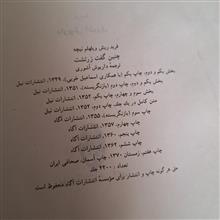 فرید ریش ویلهلم نیچه
چنین گفت زرتشت
ترجمهٔ داریوش آشوری
بخش یکم و دوم، چاپ یکم (با همکاری اسماعیل خویی)، ۱۳۴۹، انتشارات نیل
بخش یکم و دوم، چاپ دوم (بازنگریسته)، ۱۳۵۱، انتشارات نیل
بخش سوم و چهارم، چاپ یکم، ۱۳۵۲، انتشارات نیل
متن کامل در یک جلد، چاپ دوم، ۱۳۵۲، انتشارات نیل
چاپ سوم (بازنگریسته)، ۱۳۵۵، انتشارات آگاه
چاپ چهارم، ۱۳۵۷، انتشارات آگاه
چاپ پنجم، ۱۳۶۰، انتشارات آگاه
چاپ ششم، ۱۳۶۲، انتشارات آگاه
چاپ هفتم، زمستان ۱۳۷۰، چاپ آسمان، صحافی ایران
تعداد: ۴۴۰۰ جلد
حق هر گونه چاپ و انتشار برای مؤسسهٔ انتشارات آگاه محفوظ است